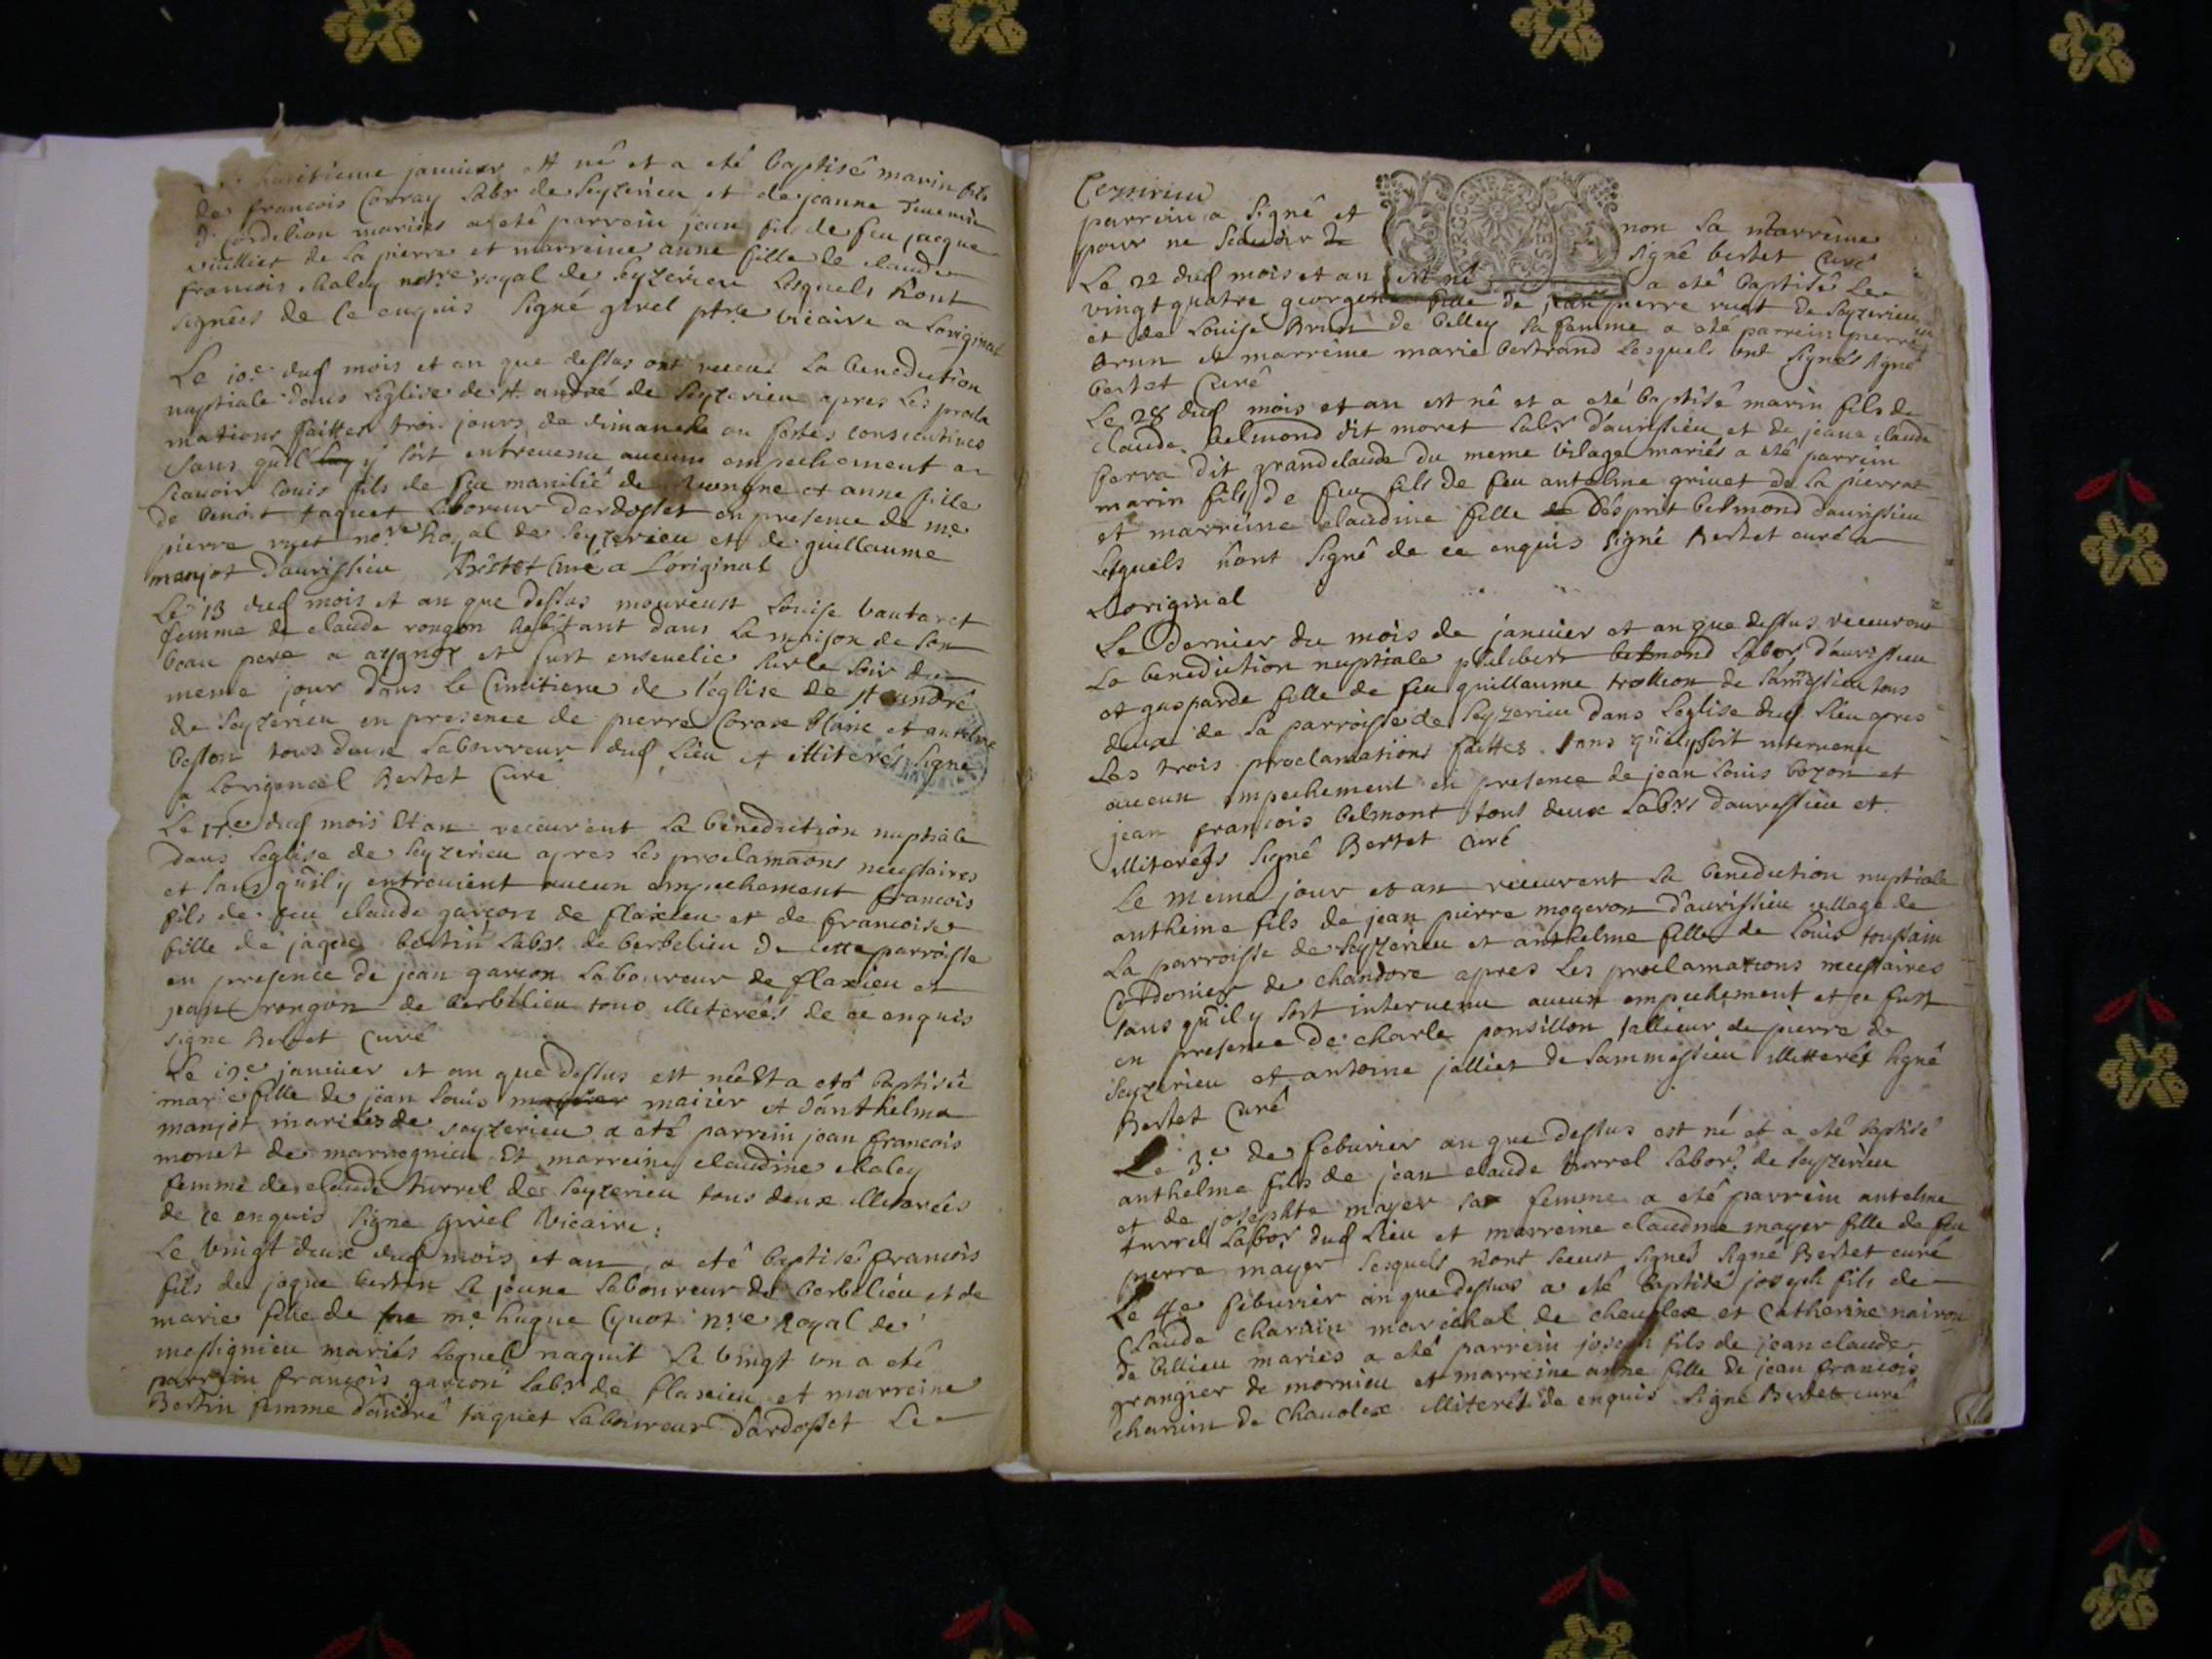 huitieme janvier est né et a eté baptisé marin fils
de francois Corray labr de Seyzerieu et de jeanne
Cordelion mariées a eté parrein jean fils de feu jacque
vuilliet de la pierre et marreine anne fille de claude
francois Maley notre royal de Seyzerieu lesquels nont
signées de ce enquis Signé girel ptre vicaire a Loriginal
Le 10e dud mois et an que dessus ont receus La benediction
nuptiale dans Leglise de st. andré de Seyzerieu apres Les procla
mations faittes trois jours de dimanche ou festes consecutives
Sans quil y soit entrevenu aucune empechement a
Scavoir Louis fils de feu de et anne fille
de benoit taquet Laboreur Dardosset en presence de me
pierre ruet nore Royal de Seyzerieu et de guillaume
manjot Daurissieu Bertet Curé a Loriginal
Le 13 dud mois et an que Dessus moureust Louise bautaret
femme de claude rongon habitant dans La maison de son
beau pere a aygnoz et fust ensevelie sur le soir du
meme jour dans Le Cimitiere de l'eglise de st andré
de Seyzerieu en presence de pierre Corare blanc et antelme
beston tous deux Labourreur dud Lieu et illiterés Signé
a Loriginael Bertet Curé
Le 17.e dud mois Et an receurent La benediction nuptiale
dans Leglise de Seyzerieu apres Les proclamaons necessaires
et sans qu'il y entrevient aucun empechement francois
fils de feu claude garçon de flaxieu et de francoise
fille de jaque bertin labr. de berbelieu De cette parroisse
en presence de jean garcon Laboureur de flaxieu et
jean rongon de berbelieu tous illeterées de ce enquis
signe Bertet Curé
Le 19e janvier et an que Dessus est née Et a eté baptisée
marie fille de jean Louis mairier et d'anthelma
manjot mariées de Seyzerieu a eté parrein jean francois
monet de marnognieu Et marreine claudine Maley
femme de claude turrel de Seyzerieu tous deux illeterées
de ce enquis Signe girel Vicaire:
Le vingt deux dud mois et an a eté baptisé francois
fils de jaque bertin Le jeune Laboureur de berbelieu et de
marie fille de me hugue Cyvot nre Royal de
messignieu mariés Lequel naquit Le vingt un a eté
parrein francois garcon labr de flaxieu et marreine
Bertin femme d'andré taquet Laboureur Dardosset Le
Ceyzirieu
parrein a Signé et non Sa marreine
pour ne Scavoir Signé bertet Curé
Le 22 dud mois et an est né a eté baptisé Le
vingt quatre georgene fille de jean pierre ruet de Seyzerieu
et de Louise Brun de belley sa femme a eté parrein pierre
Brun et marreine marie bertrand Lesquels ont signés signé
bertet Curé
Le 28 dud mois et an est né et a eté baptisé marin fils de
claude belmond dit moret Labr d'aurissieu et de jeane claude
berra dit grandclaude Du meme village mariés a eté parrein
marin fils de feu fils de feu antelme grivet de La pierrat
et marreine claudine fille Desprit belmond daurissieu
Lesquels nont Signé de ce enquis Signé Bertet curé a
Loriginal
Le Dernier du mois de janvier et an que dessus receurent
La benediction nuptiale philibert belmond Labor d'aurissieu
et gasparde fille de feu guillaume trollion de tous
deux de La parroisse de Seyzerieu dans Leglise dud Lieu apres
Les trois proclamations faittes Sans qu'il y soit intervenu
aucun impechement en presence de jean Louis bozon et
jean francois belmont tous deux Labrs daurissieu et
illiterés Signé Bertet Curé
Le meme jour et an receurent La benediction nuptiale
anthelme fils de jean pierre mogeron d'aurissieu village de
La parroisse de Seyzerieu et anthelme fille de Louis toussain
Cordonier de chandore apres Les proclamations necessaires
sans qu'il y soit intervenu aucun empechement et ce fust
en presence de charle ponsillon tallieur de pierre de
Seyzerieu et antoine jalliet de Sammessieu illitterés signé
Bertet Curé
Le 3.e de feburier an que dessus est né et a eté baptisé
anthelme fils de jean claude turrel Labor. de Seyzerieu
et de josephte mayer sa femme a eté parrein antelme
turrel Labor dud Lieu et marreine claudine mayer fille de feu
pierre mayer Lesquels nont sceust signés Signé Bertet curé
Le 4e feburier an que dessus a eté baptisé joseph fils de
Claude charvin marechal de chavolex et Catherine nairou
de billieu mariés a eté parrein joseph fils de jean claude
grangier de mornieu et marreine anne fille de jean francois
charvin de Chavolex illiterés de enquis Signé Bertet curé